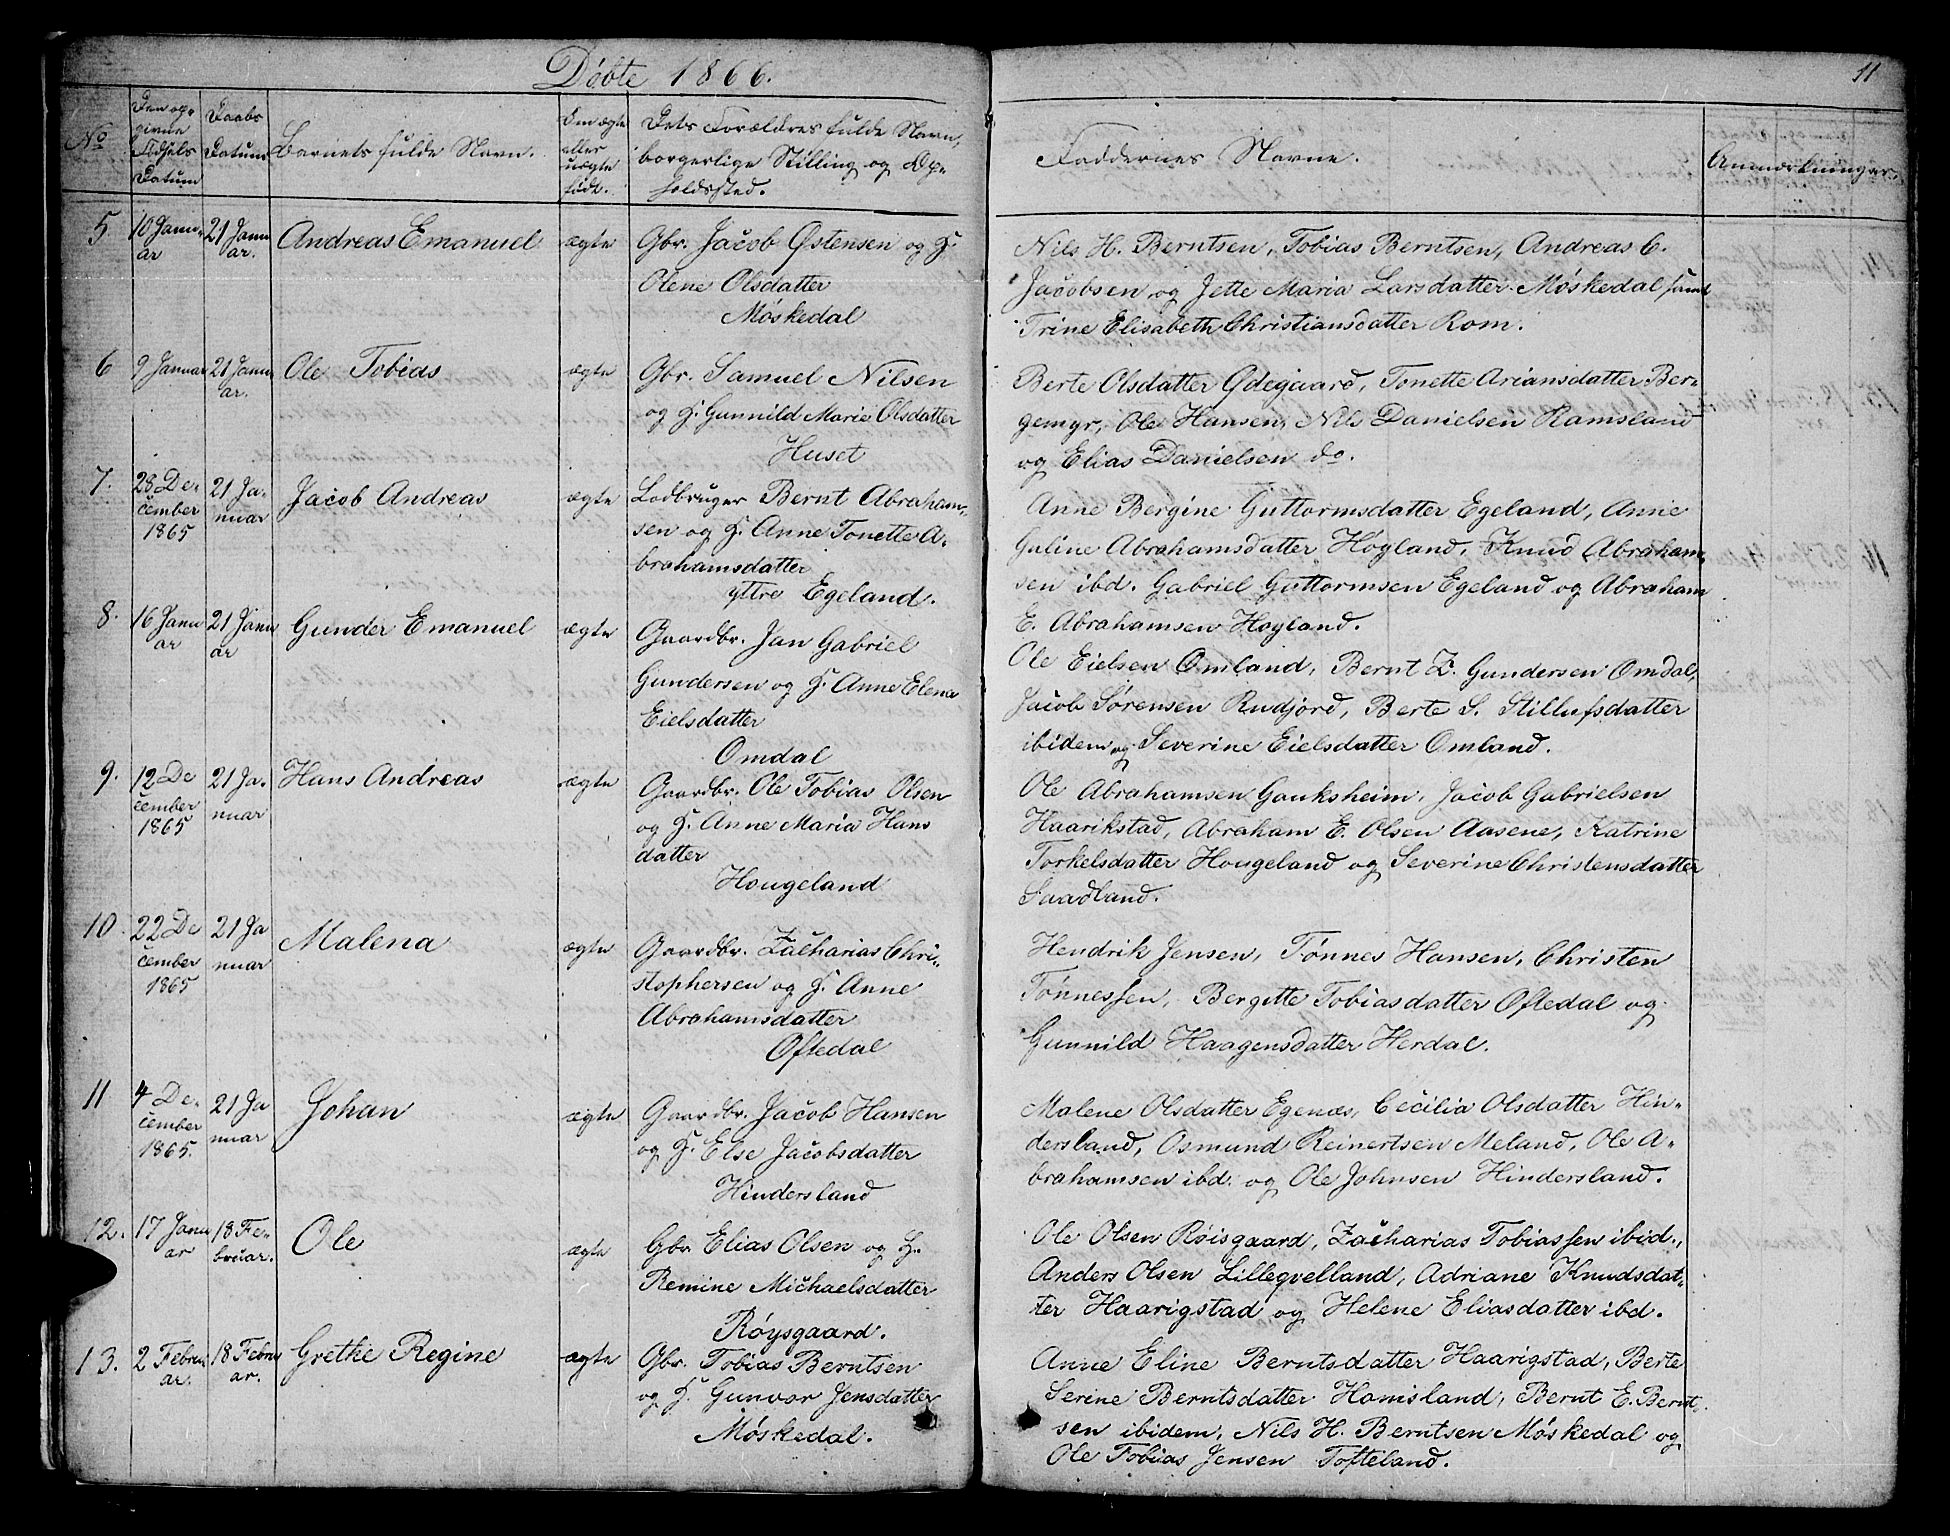 Døbte 1866.
11
No
Den op-
givne
Fødsels
Datum
Daabs
Datum
Barnets fulde Navn.
Om ægte
eller
uægte
født.
Dets Forældres fulde Navn,
borgerlige Stilling og Op-
holdssted.
Faddernes Navne.
Anmærkninger.
5.
10 Janu-
ar
21 Janu
ar.
Andreas Emanuel
ægte
Gbr. Jacob Østensen og H.
Olene Olsdatter
Møskedal
Nils H. Berntsen, Tobias Berntsen, Andreas C.
Jacobsen og Jette Maria Larsdatter Møskedal samt
Trine Elisabeth Christiansdatter Rom.
6
9 Januar
21 Janu
ar.
Ole Tobias
ægte
Gbr. Samuel Nilsen
og H. Gunnild Marie Olsdatter
Huset
Berte Olsdatter Ødegaard, Tonette Ariansdatter Ber-
gemyr, Ole Hansen, Nils Danielsen Ramsland
og Elias Danielsen do.
7.
28 De-
cember
1865
21 Ja-
nuar
Jacob Andreas
ægte
Lodbruger Bernt Abraham-
sen og H. Anne Tonette A-
brahamsdatter
yttre Egeland.
Anne Bergine Guttormsdatter Egeland, Anne
Guline Abrahamsdatter Høgland, Knud Abraham-
sen ibd. Gabriel Guttormsen Egeland og Abraham
E. Abrahamsen Høgland.
8.
16 Janu
ar
21 Janu
ar
Gunder Emanuel
ægte
Gaardbr. Jan Gabriel
Gundersen og H. Anne Elena
Eielsdatter
Omdal
Ole Eielsen Omland, Bernt Z. Gundersen Omdal,
Jacob Sørensen Rudjord, Berte S. Stillufsdatter
ibidem og Severine Eielsdatter Omland.
9.
12 De
cember
1865
21 Ja-
nuar
Hans Andreas
ægte
Gaardbr. Ole Tobias Olsen
og H. Anne Maria Hans
datter
Hougeland
Ole Abrahamsen Gauksheim, Jacob Gabrielsen
Haarikstad, Abraham E. Olsen Aasene, Katrine
Torkelsdatter Hougeland og Severine Christensdatter
Saadland.
10.
22 De
cember
1865
21 Ja
nuar
Malena
ægte
Gaardbr. Zacharias Chri-
stophersen og H. Anne
Abrahamsdatter
Oftedal
Hendrik Jensen, Tønnes Hansen, Christen
Tønnessen, Bergitte Tobiasdatter Oftedal og
Gunnild Haagensdatter Herdal.
11
4 De-
cember
1865.
21 Ja
nuar
Johan
ægte
Gaardbr. Jacob Hansen
og H. Else Jacobsdatter
Hindersland
Malene Olsdatter Egenæs, Cecilia Olsdatter Hin-
dersland, Osmund Reinertsen Meland, Ole A-
brahamsen ibd. og Ole Johnsen Hindersland.
12.
17 Janu
ar
18 Fe-
bruar.
Ole
ægte
Gbr Elias Olsen og H.
Remine Michaelsdatter
Røysgaard.
Ole Olsen Røisgaard, Zacharias Tobiassen ibid.,
Anders Olsen Lillegvelland, Adriane Knudsdat-
ter Haarigstad og Helene Eliasdatter ibd.
13.
2 Febru
ar.
18 Febru
ar.
Grethe Regine
ægte
Gbr. Tobias Berntsen
og H. Gunvor Jensdatter
Møskedal.
Anne Eline Berntsdatter Haarigstad, Berte
Serine Berntsdatter Homsland, Bernt E. Bernt-
sen ibidem, Nils H. Berntsen Møskedal og
Ole Tobias Jensen Tofteland.